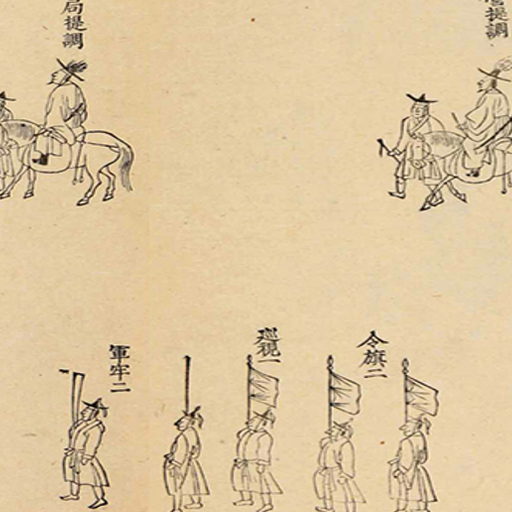 提調
局提調
令旗二
巡視一
軍牢二